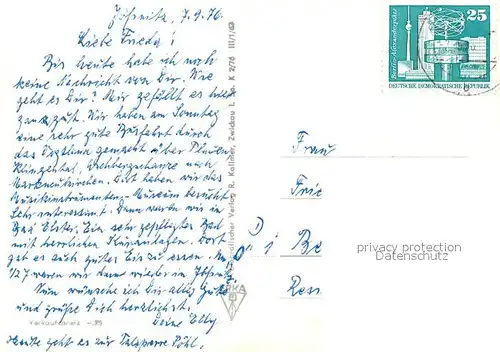 Jößnitz, 7.9.76.
Liebe Frieda!
Bis heute habe ich noch
keine Nachricht von Dir. Wie
geht es Dir? Mir gefällt es hier
ganz gut. Wir haben am Sonntag
eine sehr gute Busfahrt durch
das Vogtland gemacht über Plauen
Klingenthal, Aschbergschanze nach
Markneukirchen. Dort haben wir das
Musikinstrumenten-Museum besucht
Sehr interessant. Dann waren wir in
Bad Elster. Ein sehr gepflegtes Bad
mit herrlichen Kuranlagen. Dort
gab es auch gutes Eis zu essen.
waren wir dann wieder in Jößnitz.
Nun wünsche ich Dir alles Gute
und grüße Dich herzlichst.
Deine Elly
Heute geht es zur Talsperre Pöhl.
Verkaufspreis -.35
Verlag R. Kallmer, Zwickau I. Sa. K 2/76 III/1/69
Berlin-Alexanderplatz
25
DEUTSCHE DEMOKRATISCHE REPUBLIK
Frau
Frie
D
i Be
Ress
privacy protection
Datenschutz